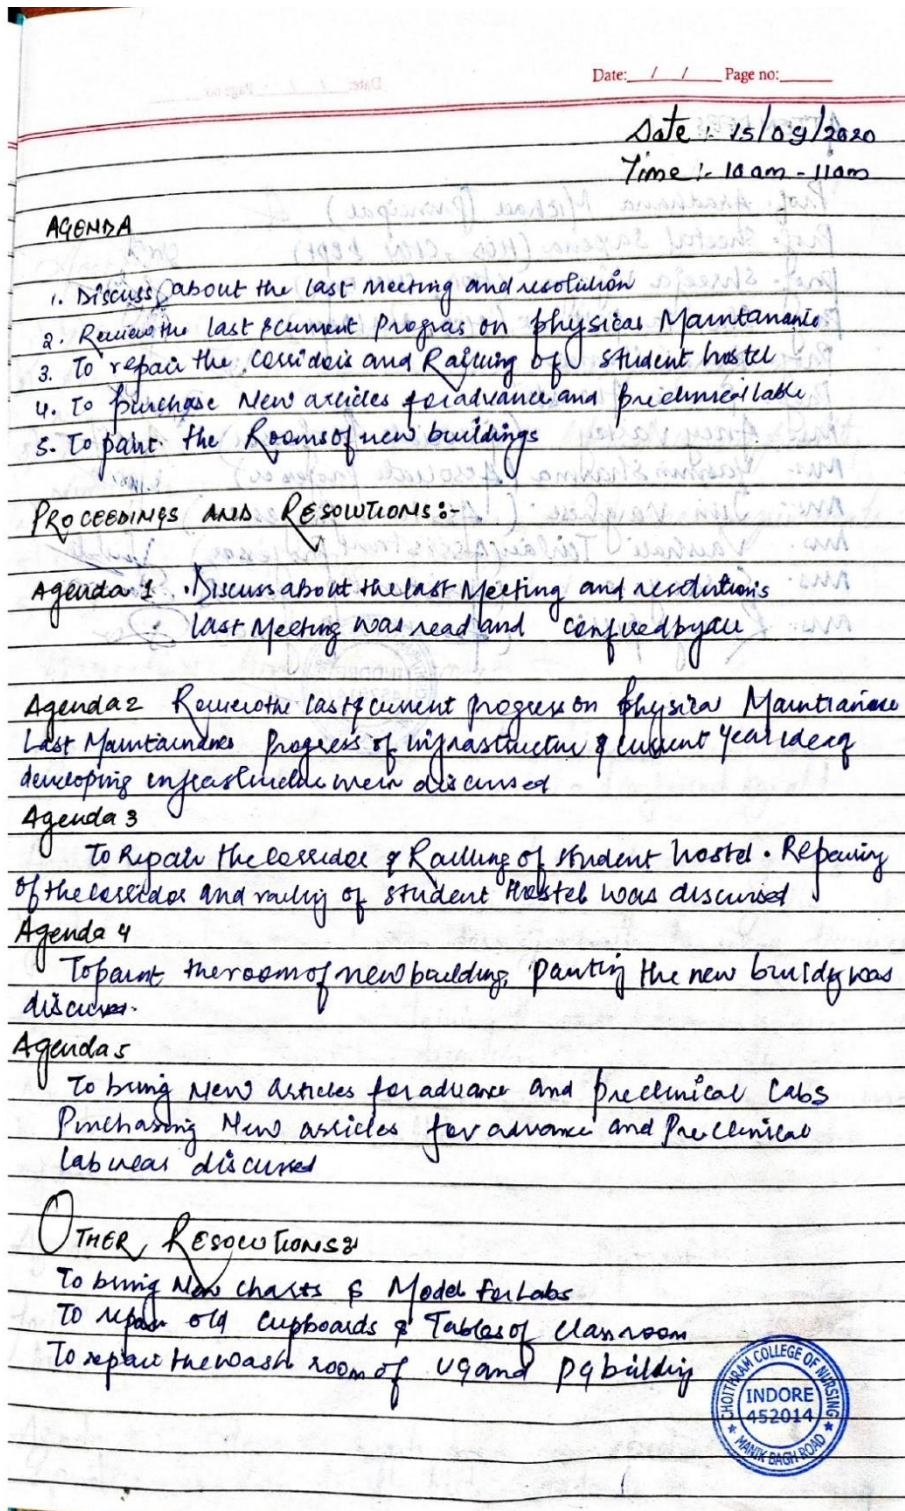 Date: / / Page no:
Date :- 15/09/2020
Time :- 10am - 11am
AGENDA
1. Discuss about the last meeting and resolution
2. Review the last & current Progras on physical Maintanance
3. To repair the corridors and Railling of student hostel
4. To purchase New articles for advance and preclinical labe
5. To paint the Rooms of new buildings
PROCEEDINGS AND RESOLUTIONS:-
Agenda 1 . Discuss about the last Meeting and resolutions
last Meeting was read and by all
Agenda 2 Review the last & current progress on physical Maintanance
Last Maintainance progress of infrastructure & current year idea of
developing infrastructure were discussed
Agenda 3
To Repair the corridor & Railling of student hostel . Repairing
of the corridor and railing of student Hostel was discussed
Agenda 4
To paint the room of new building, painting the new building was
discuss.
Agenda 5
To bring New articles for advance and preclinical Labs
Purchasing New articles for advance and Pre clinical
lab was discussed
OTHER RESOLUTIONS:
To bring New charts & Model for Labs
To repair old cupboards & Tables of class room
To repair the wash room of ug and pg building
CHOITHRAM COLLEGE OF NURSING
INDORE
452014
MANIK BAGH ROAD